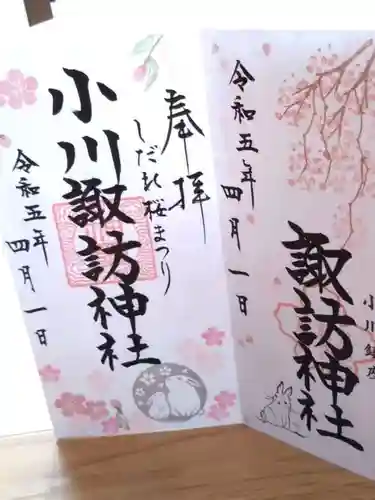 奉拝
しだれ桜まつり
小川諏訪神社
令和五年四月一日
令和五年四月一日
諏訪神社
小川鎮座